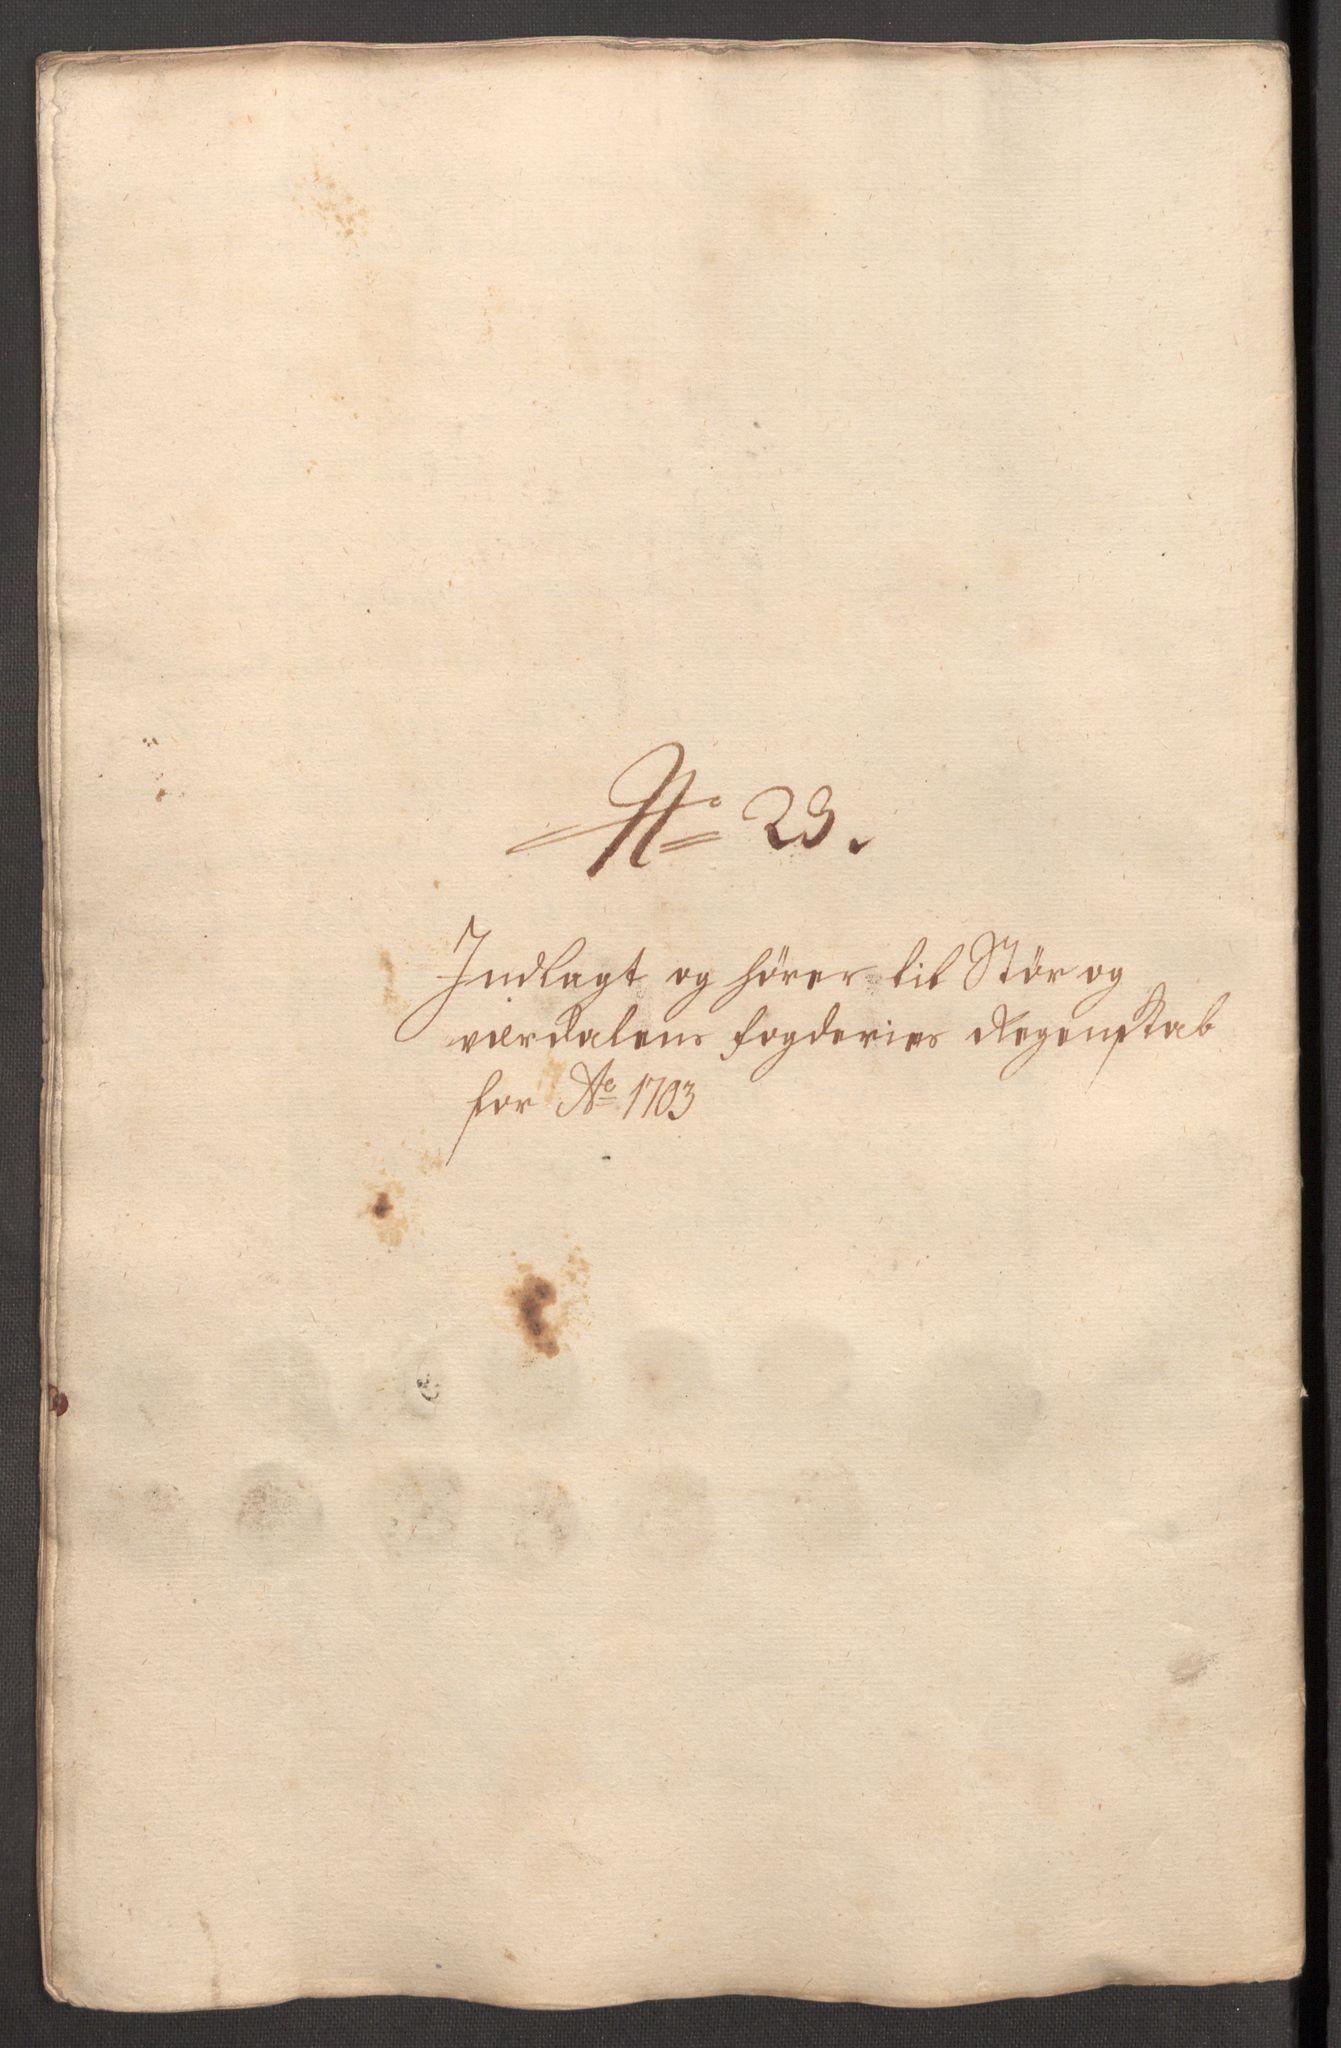 No 23.
Indlagt og hører til Stør og
værdalens fogderies Regenskab
for Ao 1703